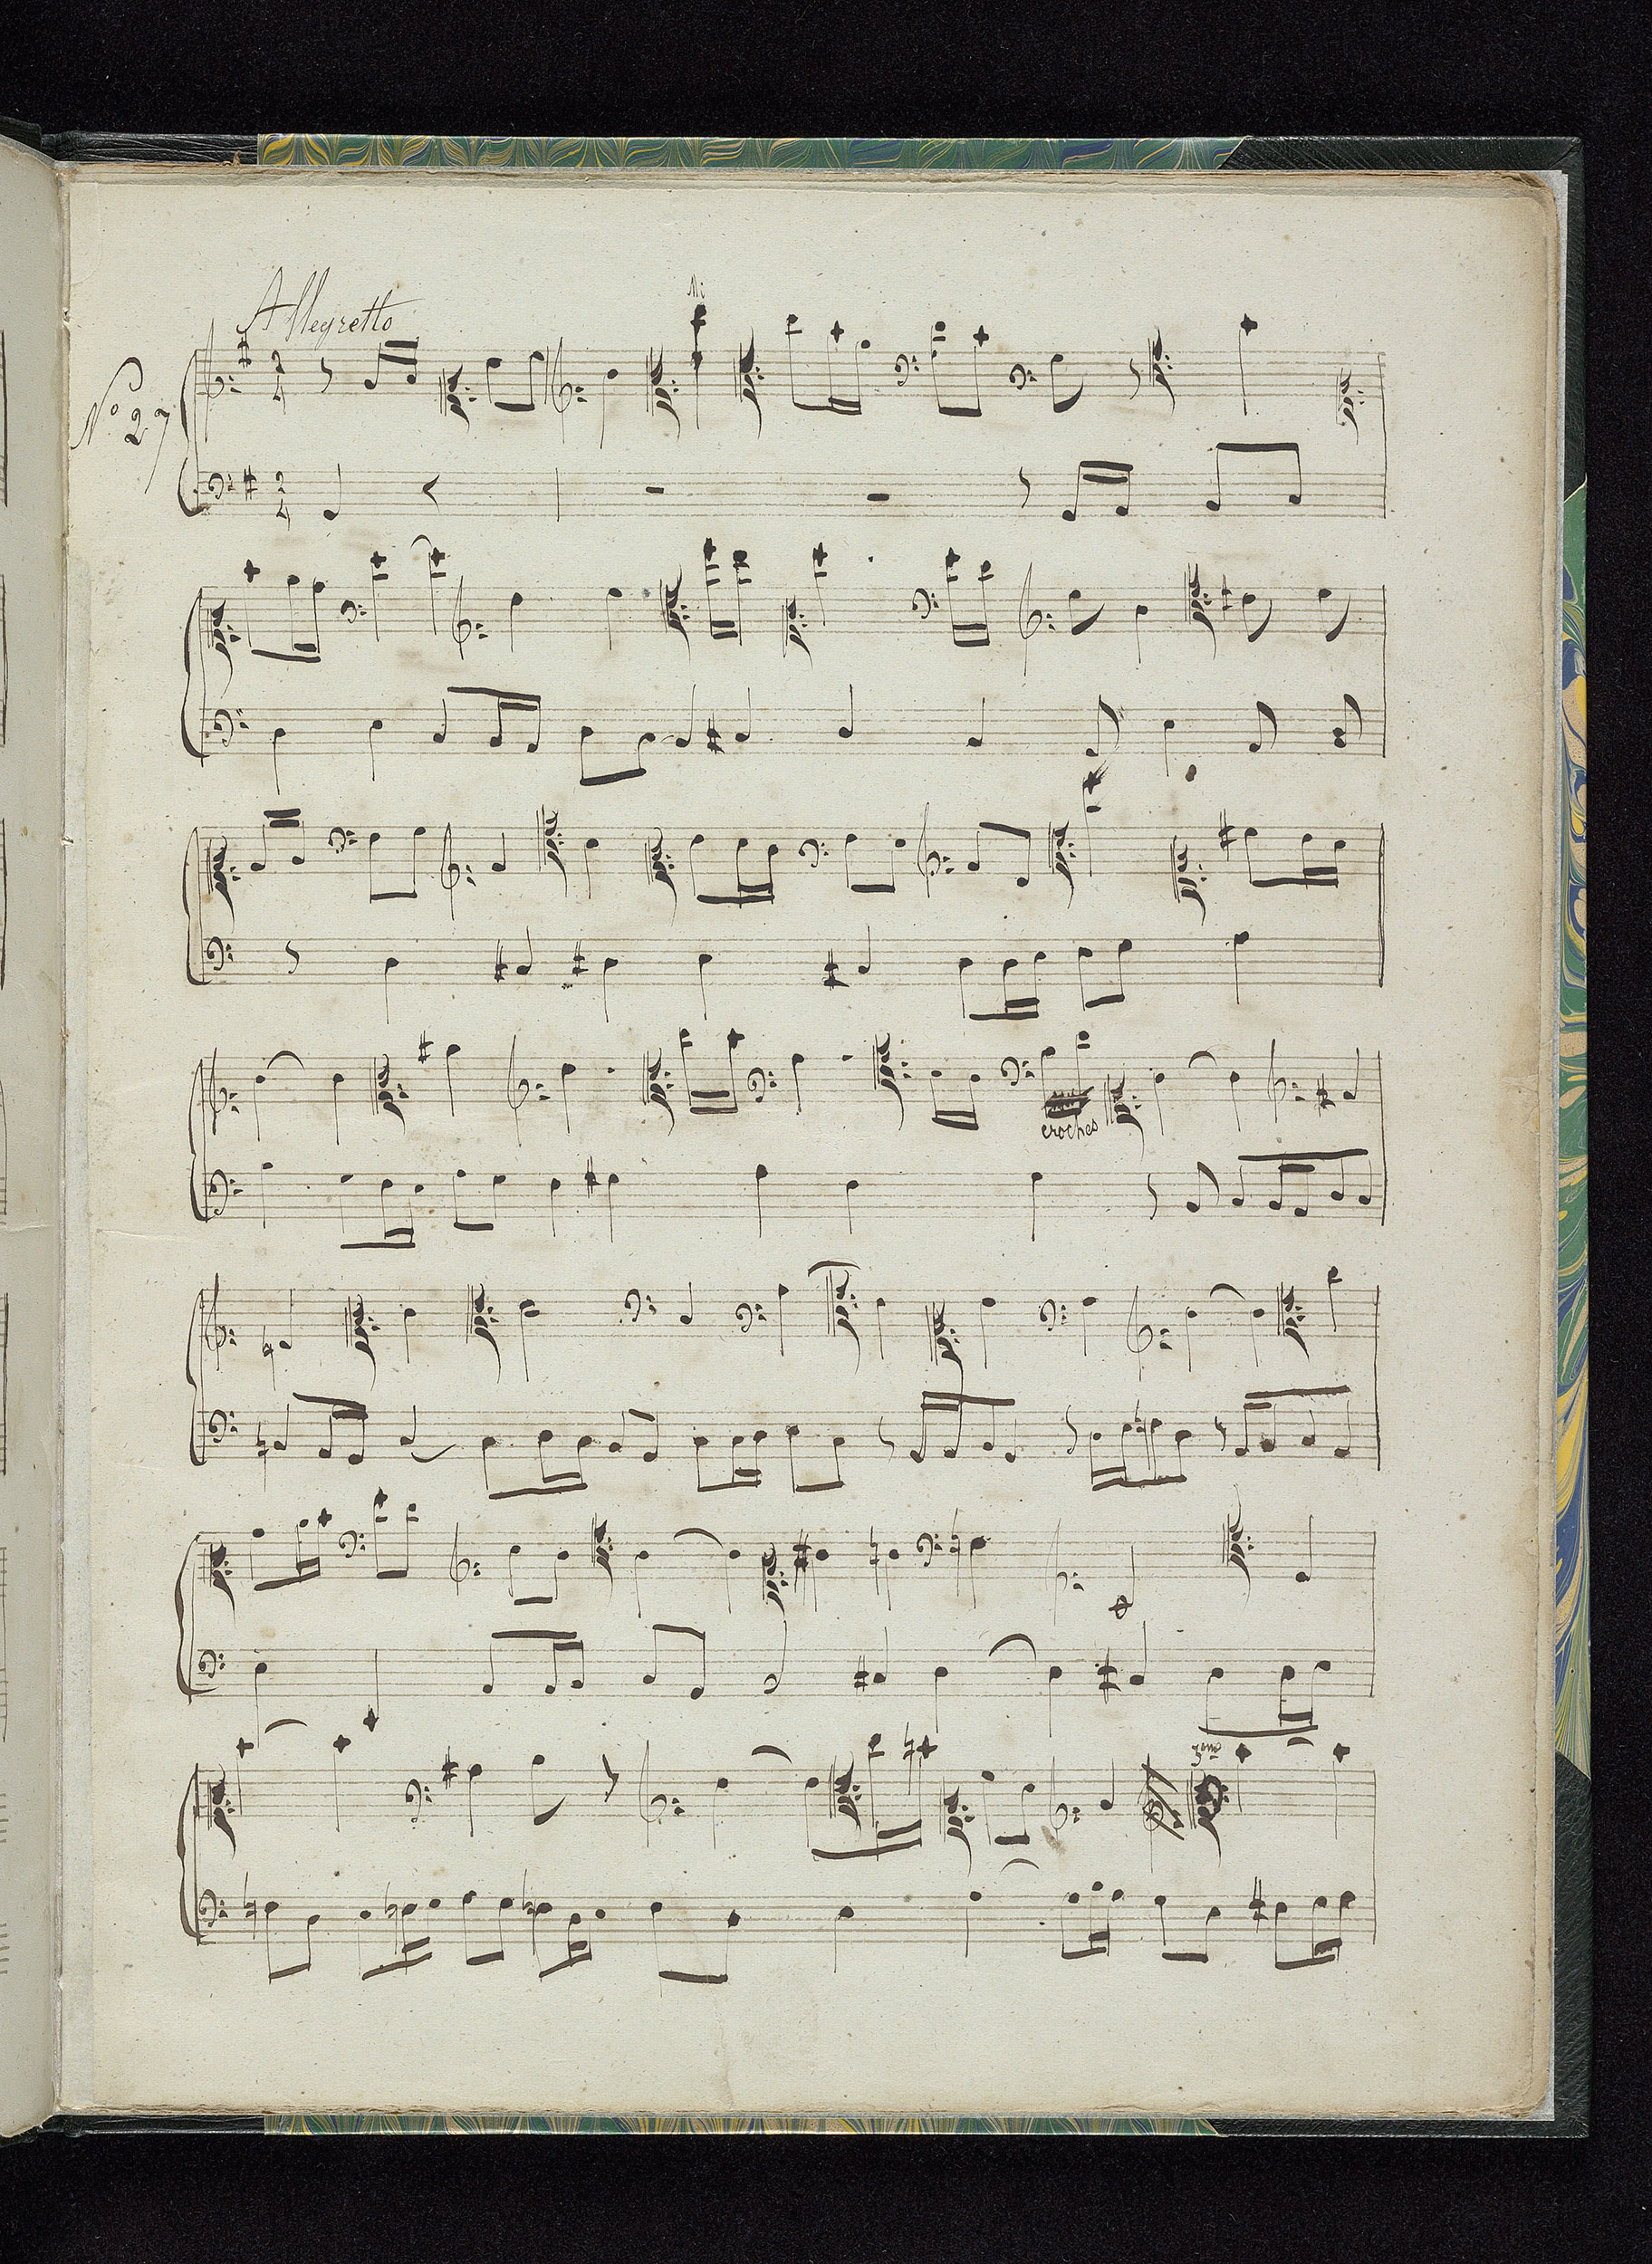 Allegretto
Mi
No 27
2
4
2
4
croches